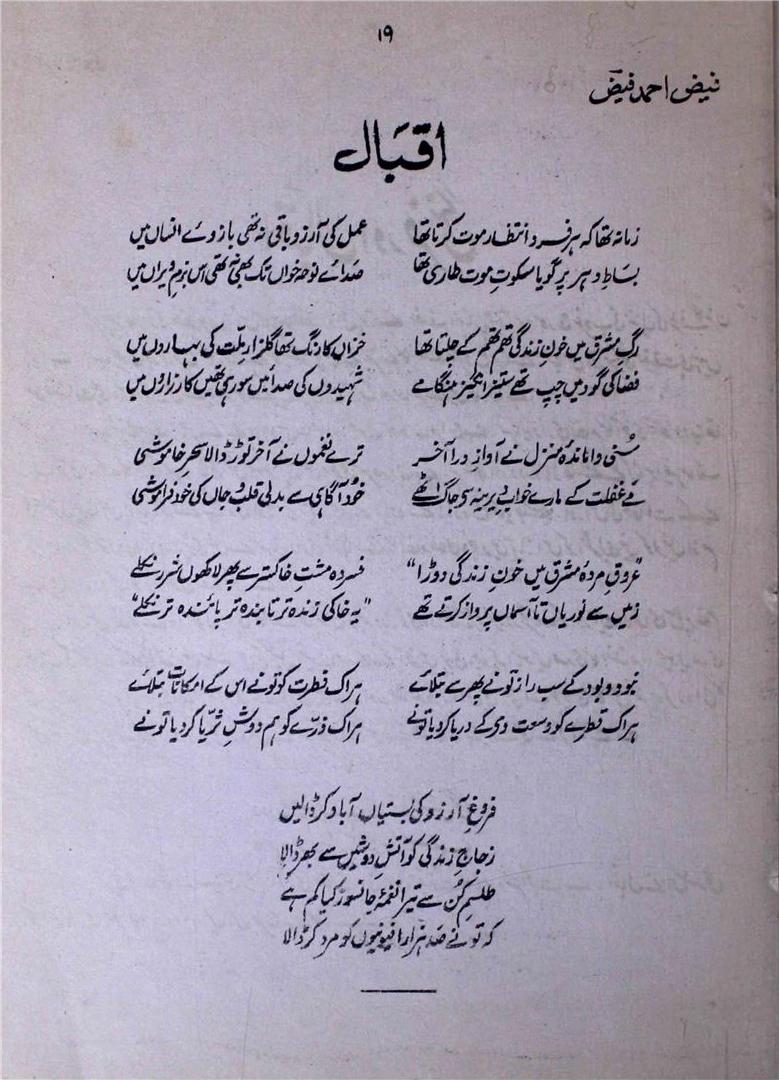 ۱۹
فیض احمد فیضؔ
اقبال
زمانہ تھا کہ ہر فرد انتظارِ موت کرتا تھا عمل کی آرزو باقی نہ تھی بازوئے انساں میں
بساطِ دہر پر گویا سکوتِ موت طاری تھا صدائے نوحہ خواں تک بھی نہ تھی اس بزمِ ویراں میں
رگِ مشرق میں خونِ زندگی تھم تھم کے چلتا تھا خزاں کا رنگ تھا گلزارِ ملّت کی بہاروں میں
فضا کی گود میں چپ تھے ستیز انگیز ہنگامے شہیدوں کی صدائیں سو رہی تھیں کارزاروں میں
سُنی واماندۂ منزل نے آوازِ درا آخر ترے نغموں نے آخر توڑ ڈالا سحرِ خاموشی
مۓ غفلت کے مارے خوابِ دیرینہ سے جاگ اٹھے خود آگاہی سے بدلی قلب و جاں کی خود فراموشی
"عروقِ مردۂ مشرق میں خونِ زندگی دوڑا" فسردہ مشتِ خاکستر سے پھر لاکھوں شرر نکلے
زمیں سے نوریاں تا آسماں پرواز کرتے تھے "یہ خاکی زندہ تر تابندہ تر پائندہ تر نکلے"
نبود و بود کے سب راز تو نے پھر سے بتلائے ہر اک فطرت کو تو نے اس کے امکانات بتلائے
ہر اک قطرے کو وسعت دی کے دریا کر دیا تو نے ہر اک ذرّے کو ہم دوشِ ثریّا کر دیا تو نے
فروغِ آرزو کی بستیاں آباد کر ڈالیں
زجاجِ زندگی کو آتشِ دوشیں سے بھر ڈالا
طلسمِ کُن سے تیرا نغمۂ جانسوز کیا کم ہے
کہ تو نے صد ہزار افیونیوں کو مرد کر ڈالا